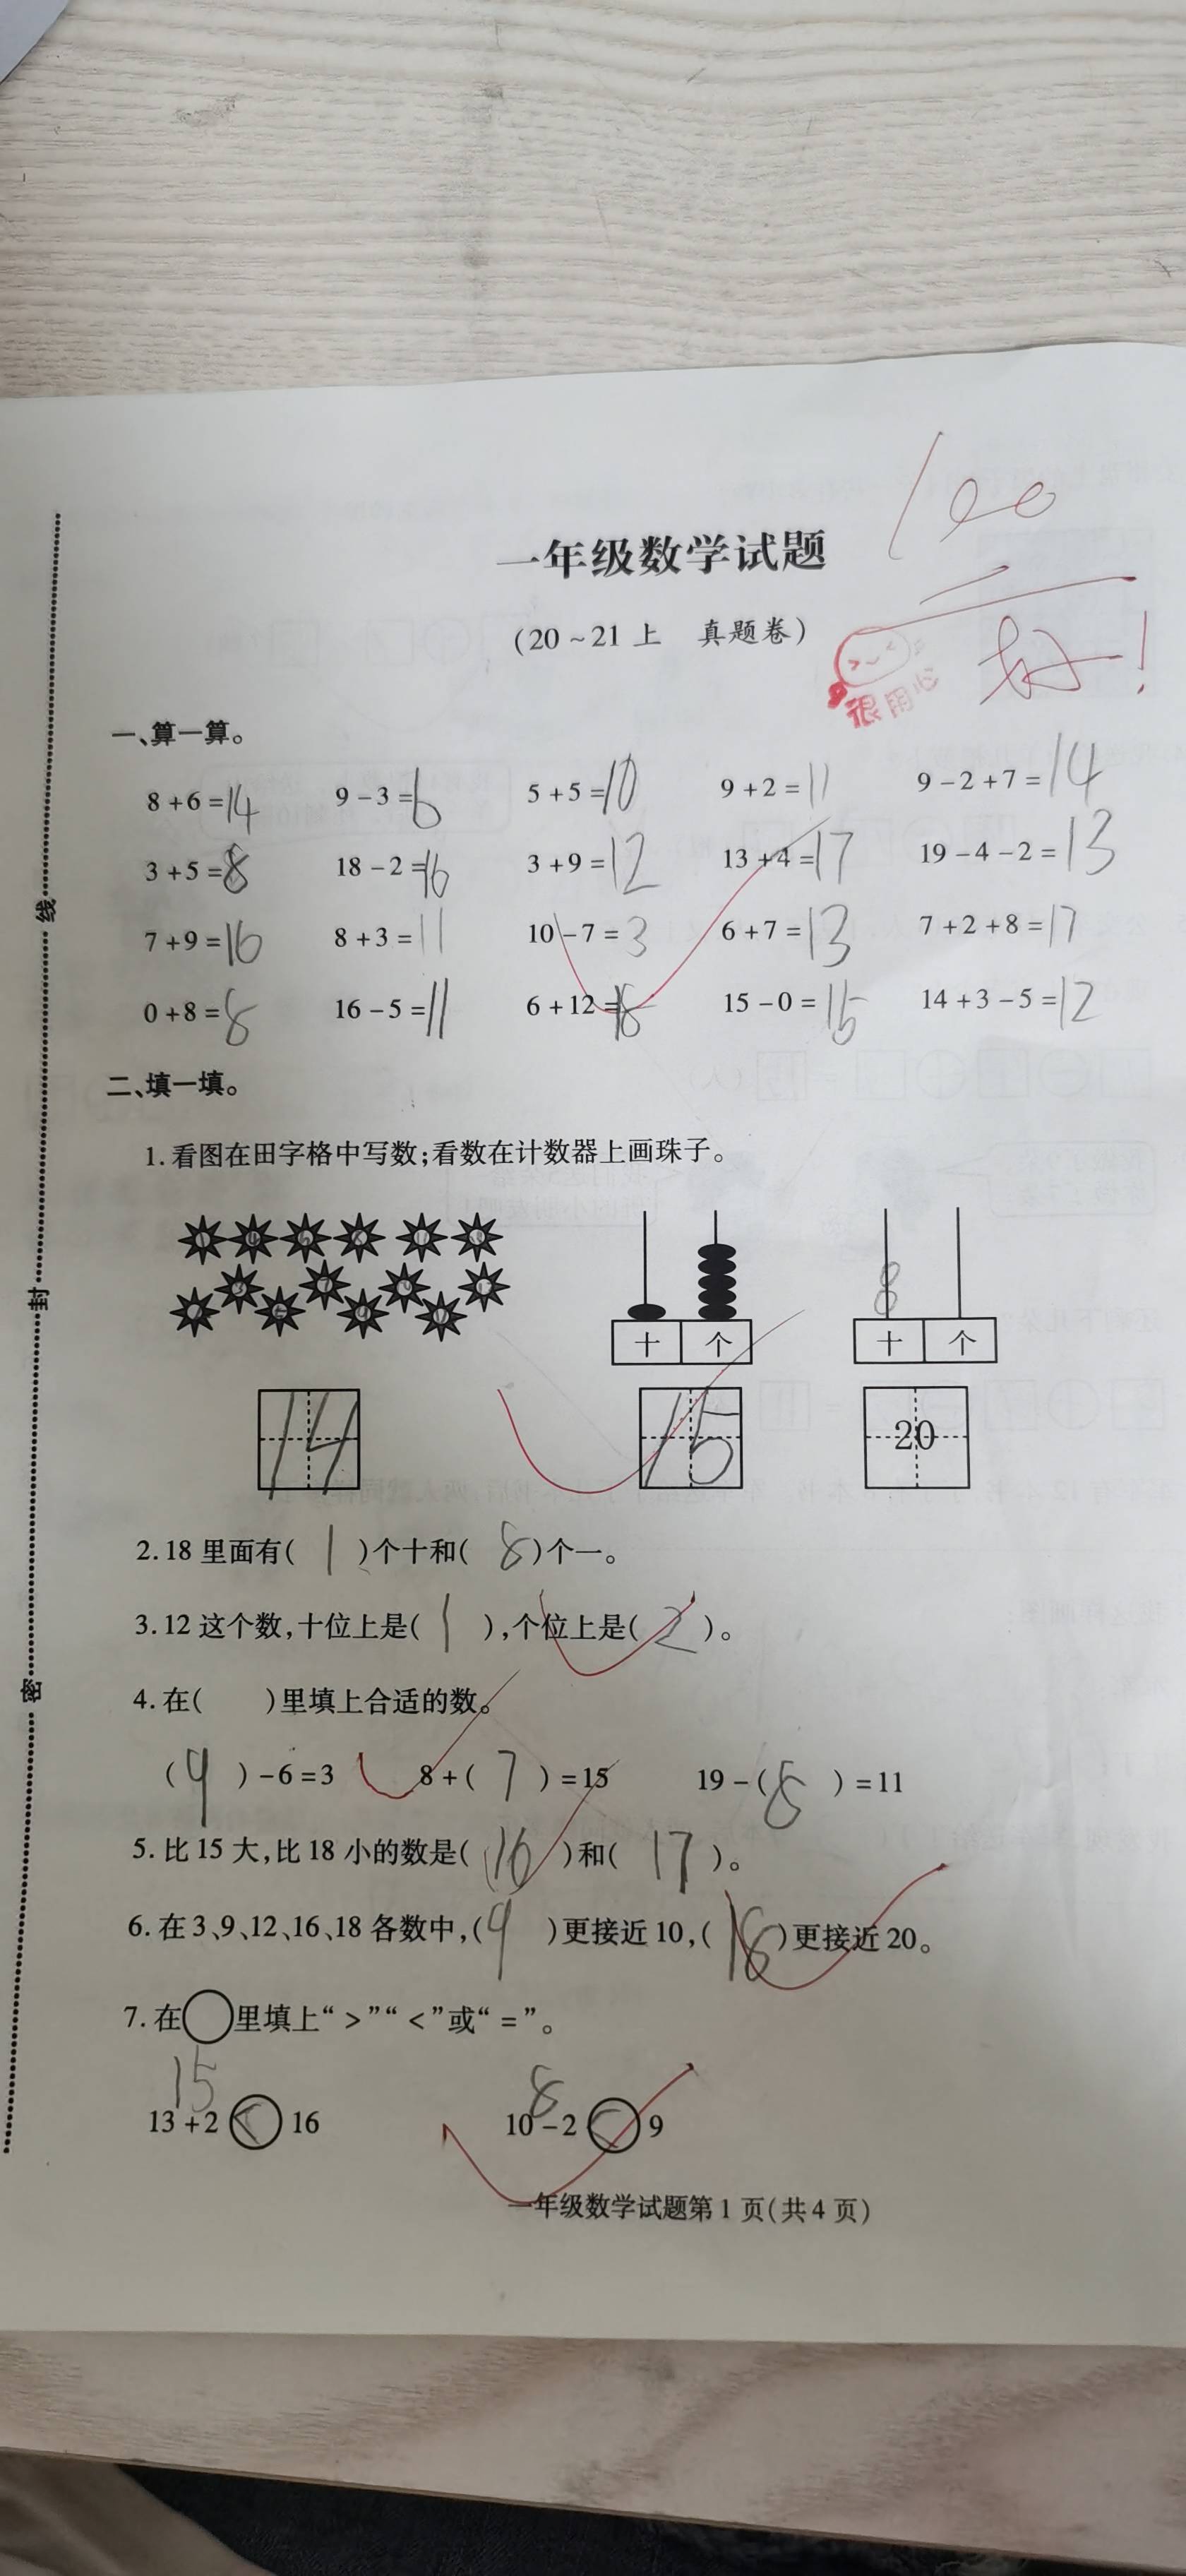 100
一年级数学试题
(20~21上 真题卷)
很用心
好!
一、算一算。
8+6=14 9-3=6 5+5=10 9+2=11 9-2+7=14
3+5=8 18-2=16 3+9=12 13+4=17 19-4-2=13
7+9=16 8+3=11 10-7=3 6+7=13 7+2+8=17
0+8=8 16-5=11 6+12=18 15-0=15 14+3-5=12
二、填一填。
1.看图在田字格中写数;看数在计数器上画珠子。
十 个 十 个
14 15 20
2.18里面有( 1 )个十和( 8 )个一。
3.12这个数,十位上是( 1 ),个位上是( 2 )。
4.在( )里填上合适的数。
( 9 )-6=3 8+( 7 )=15 19-( 8 )=11
5.比15大,比18小的数是( 16 )和( 17 )。
6.在3、9、12、16、18各数中,( 9 )更接近10,( 18 )更接近20。
7.在○里填上“>”“<”或“=”。
15 8
13+2<16 10-2<9
一年级数学试题第1页(共4页)
线
封
密